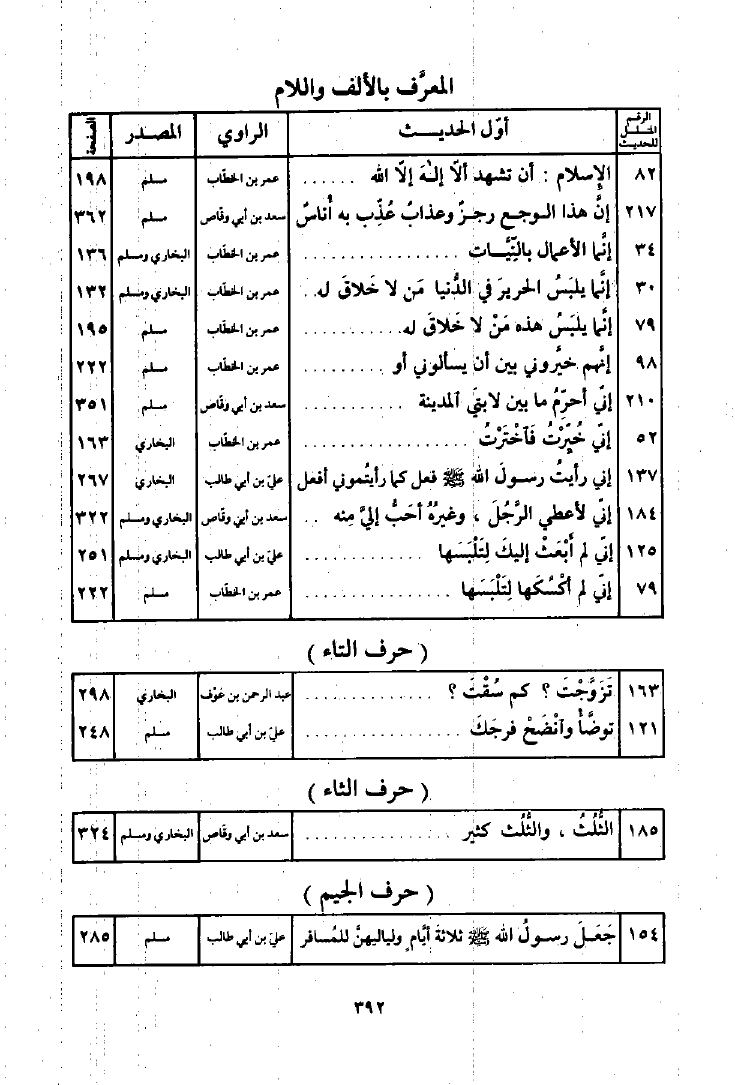 المعرَّف بالألف واللام
الرقم المسلسل للحديث | أوّل الحديث | الراوي | المصدر | الصفحة
٨٢ | الإسلام : أن تشهد ألّا إلهَ إلّا الله ...... | عمر بن الخطّاب | مسلم | ١٩٨
٢١٧ | إنَّ هذا الوجع رجزٌ وعذابٌ عُذِّب به أُناسٌ | سعد بن أبي وقاص | مسلم | ٣٦٢
٣٤ | إنَّما الأعمال بالنِّيَّات ................ | عمر بن الخطّاب | البخاري ومسلم | ١٣٦
٣٠ | إنَّما يلبَسُ الحريرَ في الدُّنيا مَن لا خَلاقَ له .. | عمر بن الخطّاب | البخاري ومسلم | ١٣٢
٧٩ | إنَّما يلبَسُ هذه مَنْ لا خَلاقَ له ........... | عمر بن الخطّاب | مسلم | ١٩٥
٩٨ | إنَّهم خيَّروني بين أن يسألوني أو ......... | عمر بن الخطّاب | مسلم | ٢٢٢
٢١٠ | إنّي أحرِّمُ ما بين لابتَي المدينة .......... | سعد بن أبي وقاص | مسلم | ٣٥١
٥٢ | إنّي خُيِّرْتُ فَاخْتَرْتُ ................. | عمر بن الخطّاب | البخاري | ١٦٣
١٣٧ | إني رأيتُ رسولَ الله ﷺ فعل كما رأيتُموني أفعل | عليّ بن أبي طالب | البخاري | ٢٦٧
١٨٤ | إنّي لأعطي الرَّجُلَ ، وغيرُهُ أحَبُّ إليَّ مِنه .. | سعد بن أبي وقاص | البخاري ومسلم | ٣٢٢
١٢٥ | إنّي لم أَبْعَثْ إليكَ لِتَلْبَسَها ............ | عليّ بن أبي طالب | البخاري ومسلم | ٢٥١
٧٩ | إنّي لم أكْسُكَها لِتَلْبَسَها ............... | عمر بن الخطّاب | مسلم | ٢٢٢
( حرف التاء )
١٦٣ | تَزَوَّجْتَ ؟ كم سُقْتَ ؟ ............. | عبد الرحمن بن عَوْف | البخاري | ٢٩٨
١٢١ | توضَّأْ وانْضَحْ فرجَكَ ................ | عليّ بن أبي طالب | مسلم | ٢٤٨
( حرف الثاء )
١٨٥ | الثُّلُثُ ، والثُّلُث كثير ............... | سعد بن أبي وقاص | البخاري ومسلم | ٣٢٤
( حرف الجيم )
١٥٤ | جَعَلَ رسولُ الله ﷺ ثلاثةَ أيَّامٍ ولياليهنَّ للمُسافر | عليّ بن أبي طالب | مسلم | ٢٨٥
٣٩٢